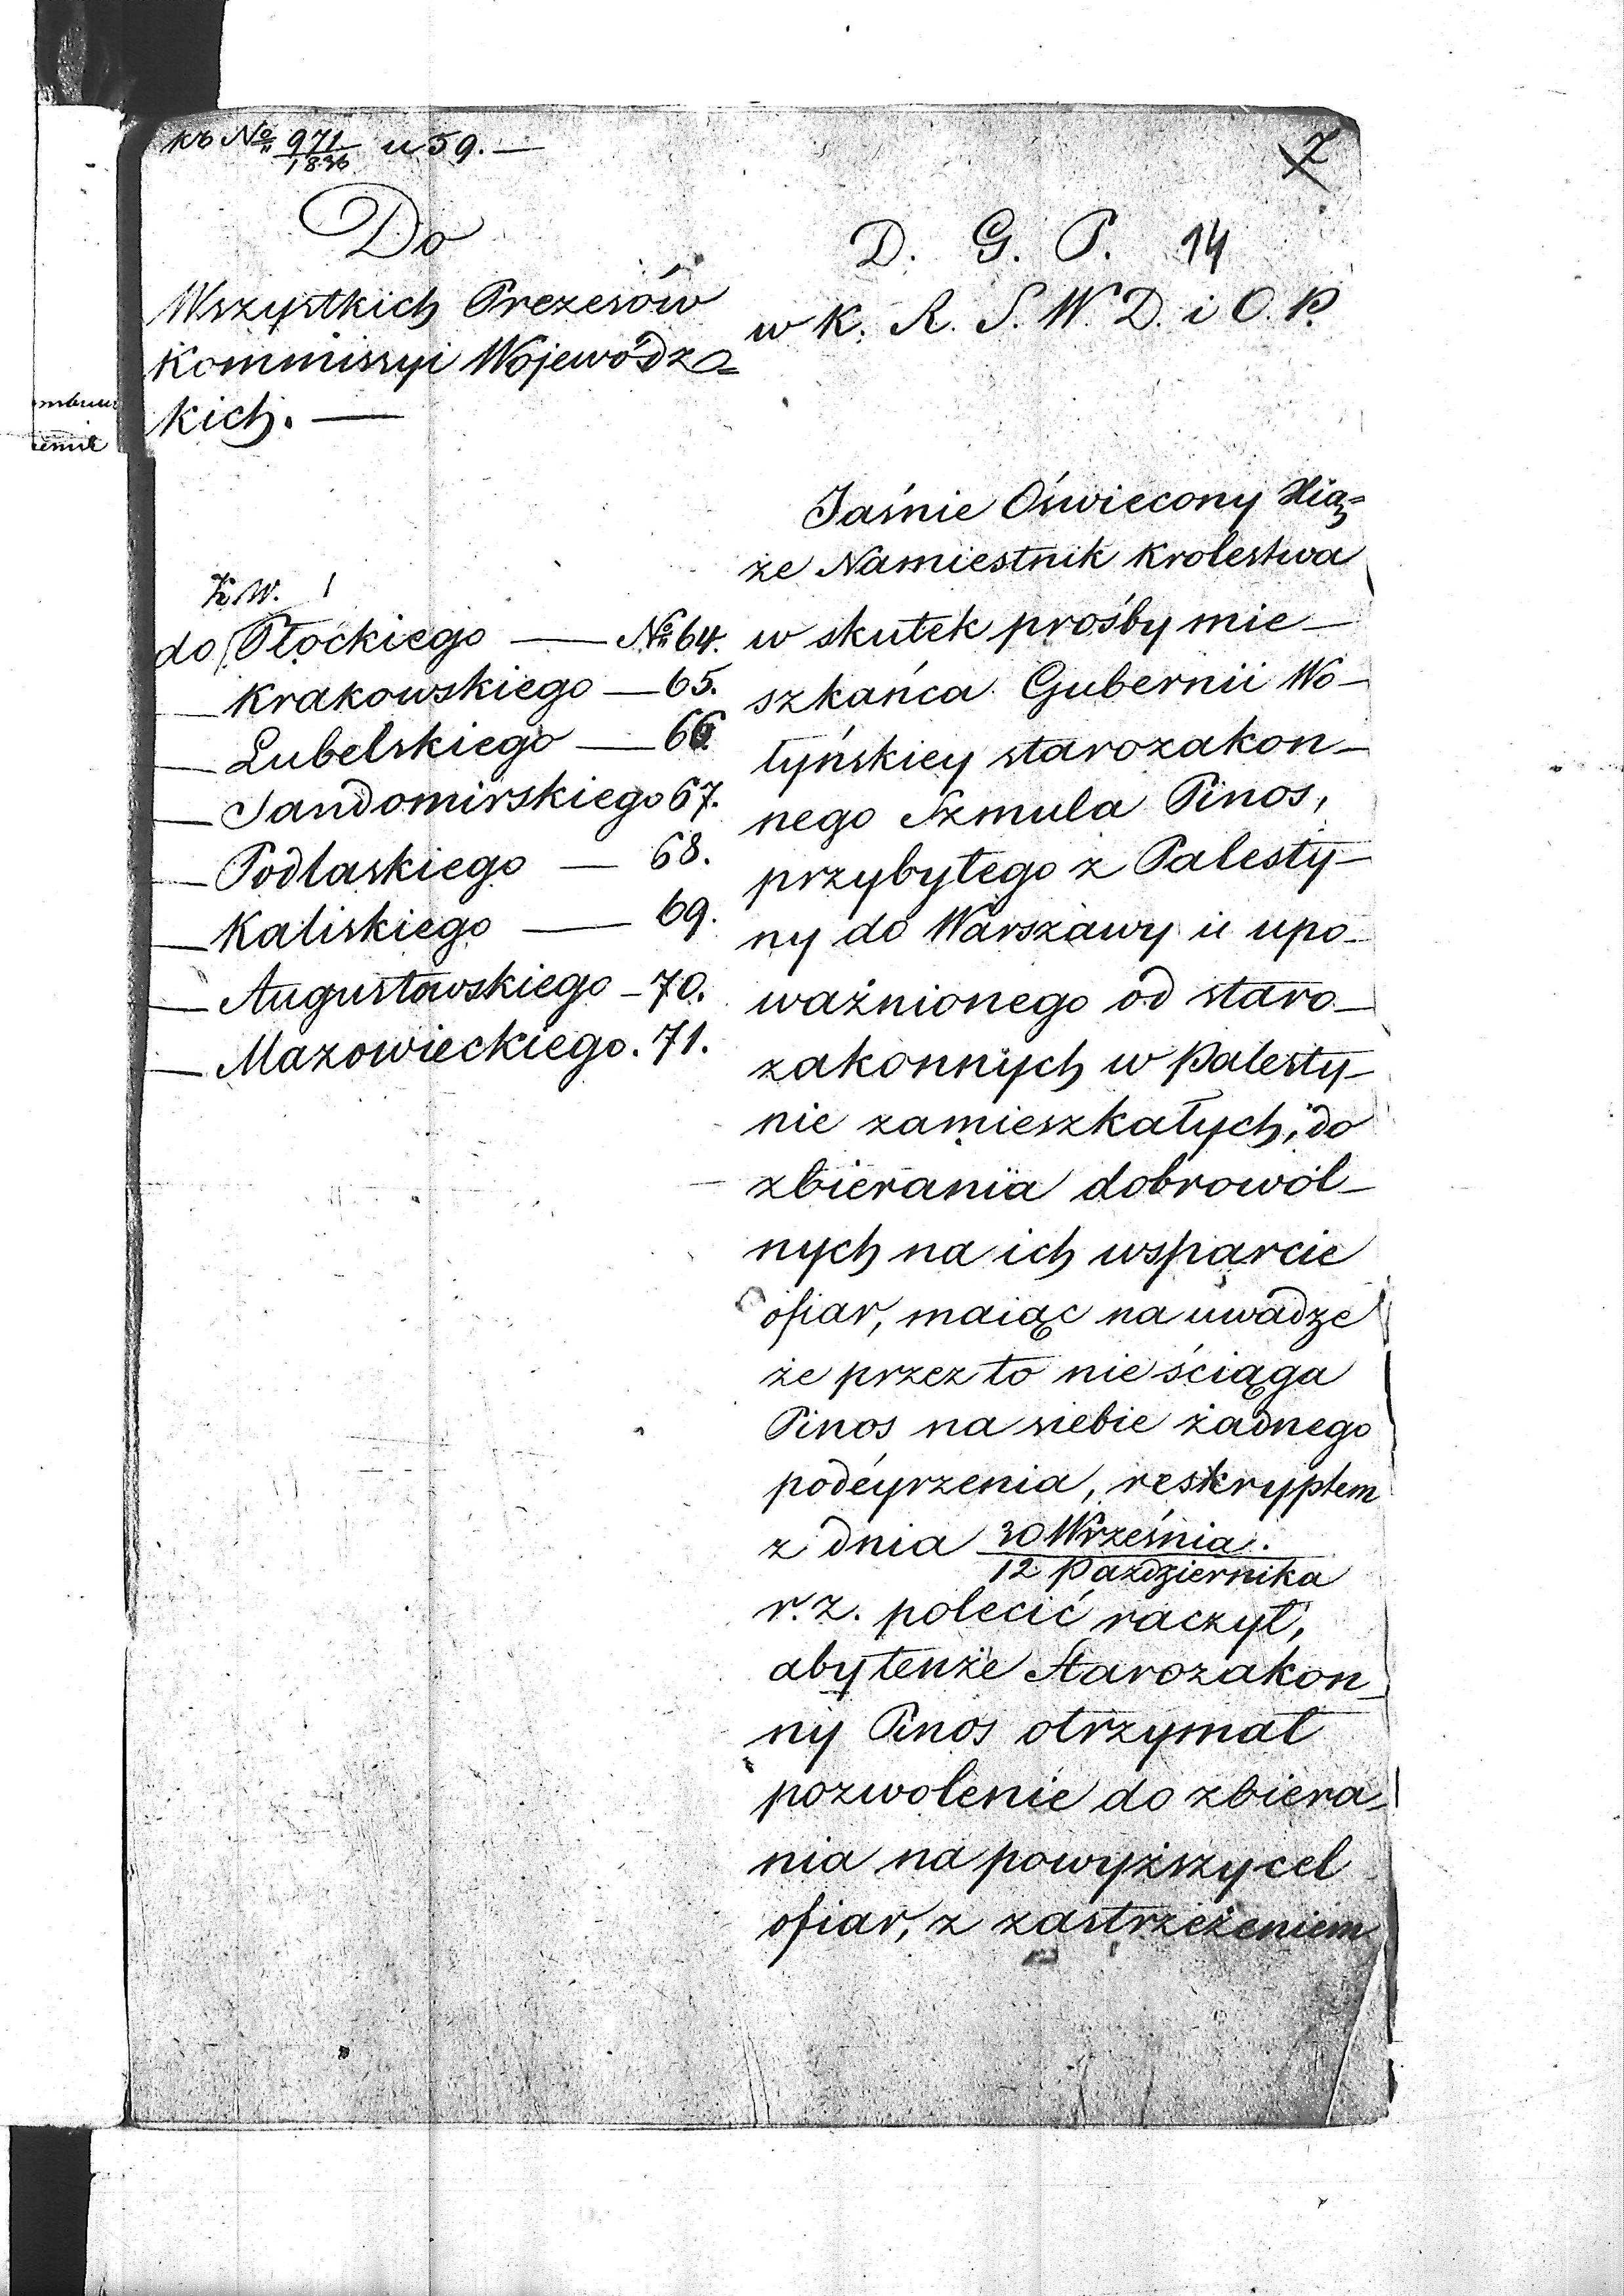 къ № 971/1836 и 59. —
Do
Wszystkich Prezesów
Kommissyi Wojewódz=
kich. —
K. W.
do Płockiego — № 64.
— Krakowskiego — 65.
— Lubelskiego — 66
— Sandomirskiego 67.
— Podlaskiego — 68.
— Kaliskiego — 69.
— Augustowskiego — 70.
— Mazowieckiego. 71.
7
D. G. P. 14
w K. R. S. W. D. i O. P.
Jaśnie Oświecony Xią=
że Namiestnik Krolestwa
w skutek prośby mie—
szkańca Gubernii Wo—
łyńskiey starozakon—
nego Szmula Pinos,
przybyłego z Palesty—
ny do Warszawy i upo—
ważnionego od staro—
zakonnych w Palesty—
nie zamieszkałych, do
zbierania dobrowol—
nych na ich wsparcie
ofiar, maiąc na uwadze
że przez to nie ściąga
Pinos na siebie żadnego
podeyrzenia, reskryptem
z dnia 30 Września / 12 Października
r. z. polecić raczył,
aby tenże Starozakon—
ny Pinos otrzymał
pozwolenie do zbiera—
nia na powyższy cel
ofiar, z zastrzeżeniem